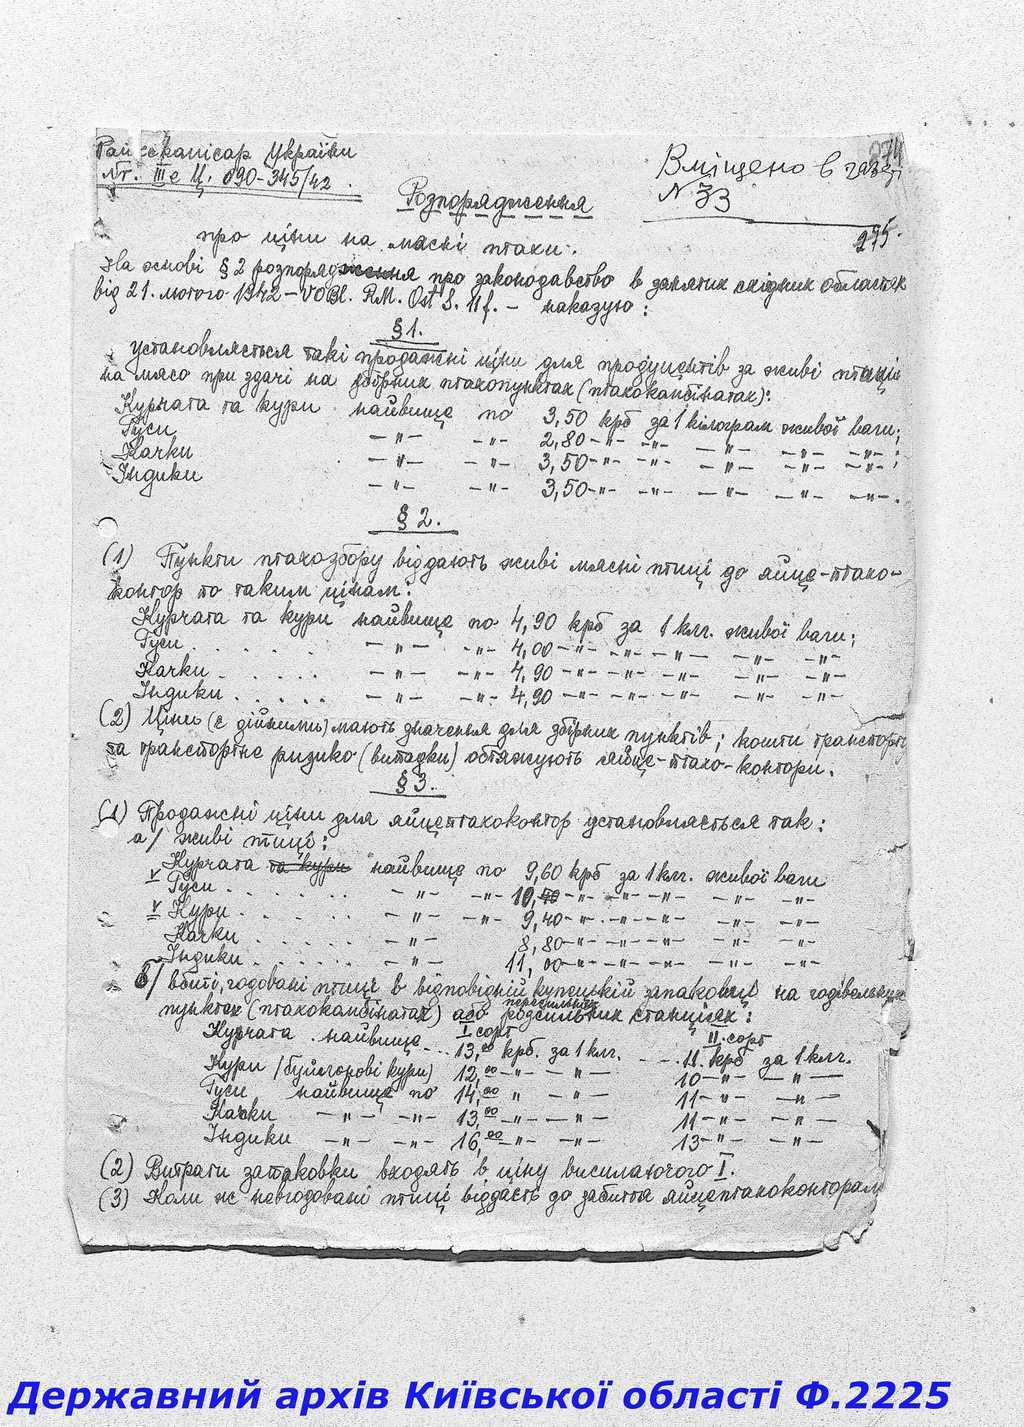 Райхскомісар України
Nr. III e Ц. 090-345/42.
Вміщено в газеті
N 33
274
275.
Розпорядження
про ціни на мясні птахи.
На основі § 2 розпорядження про законодавство в занятих східних областях
від 21. лютого 1942 – VOBl. R.M. Ost S. 11 f. – наказую:
§ 1.
Установляється такі продажні ціни для продуцентів за живі птиці
на мясо при здачі на збірних птахопунктах (птахокомбінатах):
Курчата та кури найвище по 3,50 крб за 1 кілограм живої ваги;
Гуси —"— —"— 2,80 —"— —"— —"— —"— —"— ;
Качки —"— —"— 3,50 —"— —"— —"— —"— —"— ;
Індики —"— —"— 3,50 —"— —"— —"— —"— —"— .
§ 2.
(1) Пункти птахозбору віддають живі мясні птиці до яйце-птахо-
контор по таким цінам:
Курчата та кури найвище по 4,90 крб за 1 клг. живої ваги;
Гуси . . . . . —"— —"— 4,00 —"— —"— —"— —"— —"—
Качки . . . . . —"— —"— 4,90 —"— —"— —"— —"— —"—
Індики . . . . . —"— —"— 4,90 —"— —"— —"— —"— —"—
(2) Ціни (є дійсними) мають значення для збірних пунктів; кошти транспорту
та транспортне ризико (випадки) обтяжують яйце-птахо-контори.
§ 3.
(1) Продажні ціни для яйцептахоконтор установляється так:
а/ живі птиці:
Курчата та кури найвище по 9,60 крб за 1 клг. живої ваги
v Гуси . . . . . —"— —"— 10, —"— —"— —"— —"— —"—
v Кури . . . . . —"— —"— 9,40 —"— —"— —"— —"— —"—
Качки . . . . . —"— 8,80 —"— —"— —"— —"— —"—
Індики . . . . . —"— 11,00 —"— —"— —"— —"— —"—
б/ вбиті, годовані птиці в відповідній купецькій запаковці на годівельних
пересильних
пунктах (птахокомбінатах) або станціях:
I сорт II. сорт
Курчата найвище . . . 13,00 крб. за 1 клг. . . . 11. крб за 1 клг.
Кури / кури) 12,00 —"— —"— 10 —"— —"—
Гуси найвище по 14,00 " —"— 11 —"— —"—
Качки —"— —"— 13,00 —"— —"— 11 —"— —"—
Індики —"— —"— 16,00 —"— —"— 13 —"— —"—
(2) Витрати запаковки входять в ціну висилаючого I.
(3) Коли ж невгодовані птиці віддаєть до забиття яйцептахоконторам
Державний архів Київської області Ф.2225